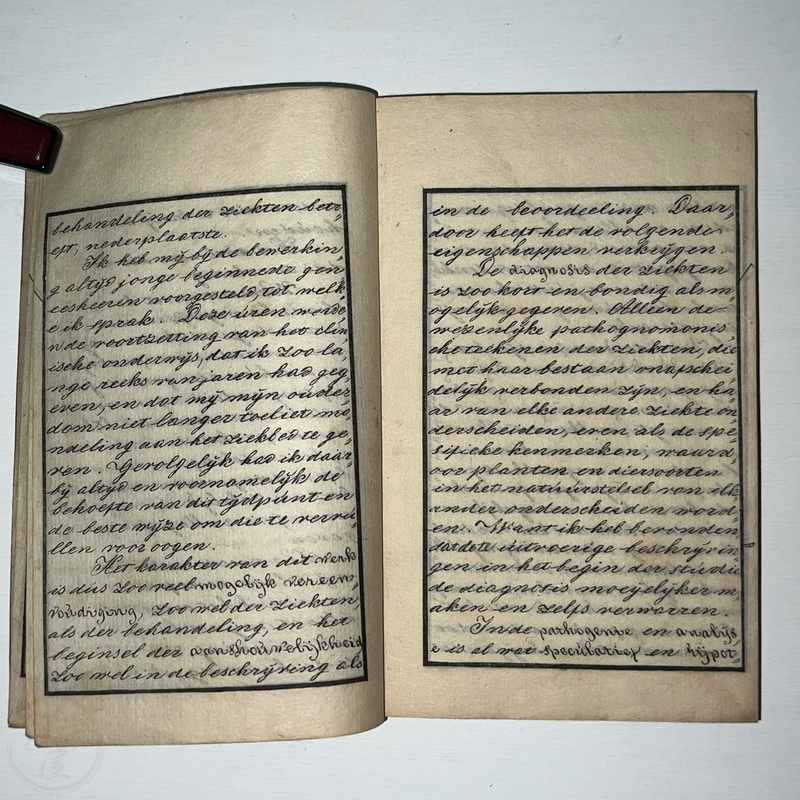 behandeling der ziekten betr,
eft, nederplaatste.
Ik heb my by de bewerkin,
g altyd jonge beginnede gen,
eesheerin voorgesteld, tot welk,
e ik sprak. Deze uren worde,
n de voortzetting van het clin,
ische onderwijs, dat ik zoo la,
nge reeks van jaren had geg,
even, en dat my myn ouder,
dom niet langer toeliet ma,
ndeling aan het ziekbed te ge,
ven. Gevolgelyk had ik daar,
by altyd en voornamelyk de
behoefte van dit tydpunt en
de beste wyze om die te vervu,
llen voor oogen.
Het karakter van dit verk
is dus zoo veel mogolijk vereen,
voudiging, zoo wel der ziekten,
als der behandeling, en het
beginsel der aanshouwelijkheid
zoo wel in de beschryving als
in de beoordeeling. Daar,
door heeft het de volgende
eigenschappen verkrygen.
De diagnosis der ziekten
is zoo kort en bondig als m,
ogelyk gegeven. Alleen de
wezenlyke pathognomonis,
che teekenen der ziekten, die
met haar bestaan onafschei,
delyk verbonden zyn, en ha,
ar van elke andere ziekte on,
derscheiden, even als de spe,
sifieke kenmerken, waard,
oor planten en diersoorten
in het natuurstelsel van elk,
ander onderscheiden word,
en. Want ik heb bevonden,
dat de te uitvoerige beschryvin,
gen in het begin der studie
de diagnosis moeyelyker m,
aken en zelfs verwarren.
In de pathogenie en analijs,
e is al wat speculatief en hijpot,